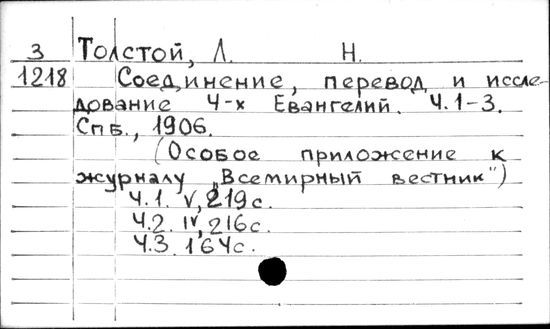 З Толстой, Л. Н.
1218 Соединение, перевод и иссле-
дование 4-х Евангелий. Ч.1-3.
Спб., 1906.
(Особое приложение к
журналу „Всемирный вестник")
Ч.1. V, 219с.
Ч.2. IV, 216с.
Ч.3. 164с.